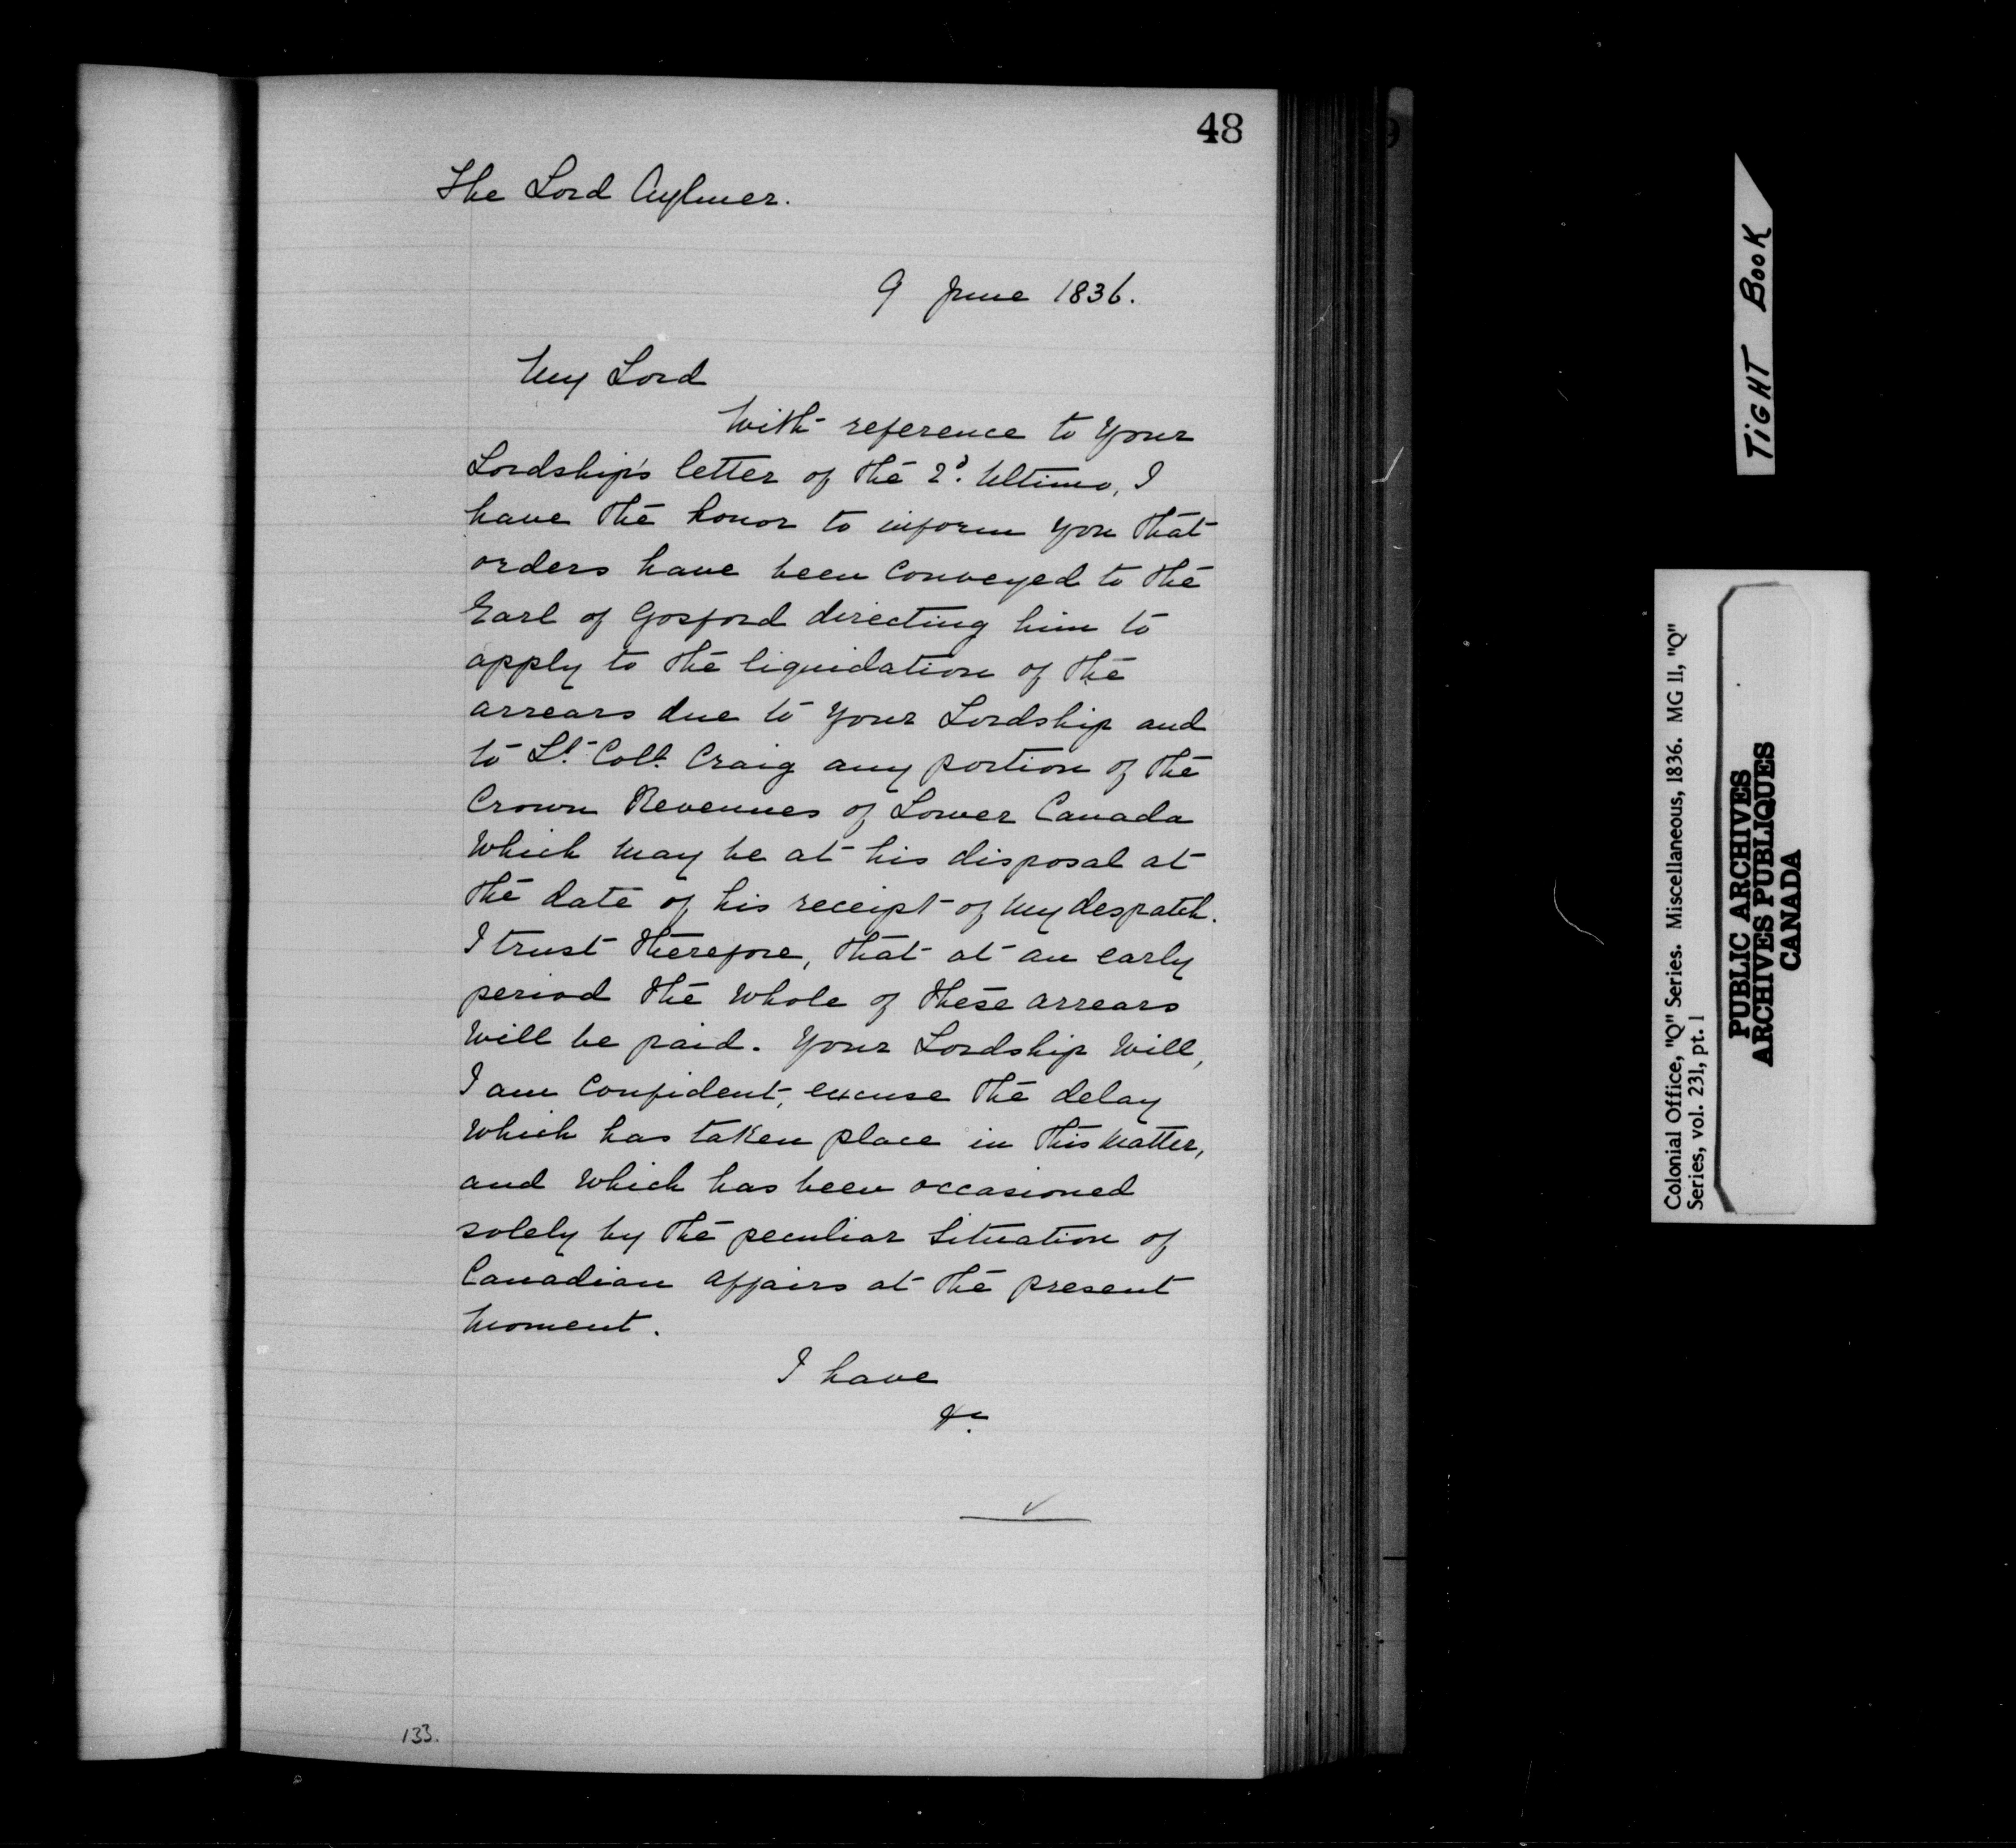 48
The Lord Aylmer.
9 June 1836.
My Lord
With reference to Your
Lordship's letter of the 2d. Ultimo, I
have the honor to inform you that
orders have been Conveyed to the
Earl of Gosford directing him to
apply to the liquidation of the
arrears due to Your Lordship and
to Lt. Coll. Craig any portion of the
Crown Revenues of Lower Canada
Which May be at his disposal at
the date of his receipt of My despatch.
I trust therefore, that at an early
period the Whole of these arrears
Will be paid. Your Lordship Will,
I am Confident, excuse the delay
Which has taken place in this Matter,
and Which has been occasioned
solely by the peculiar Situation of
Canadian affairs at the present
Moment.
I have
&c.
133.
TIGHT BOOK
Colonial Office, "Q" Series. Miscellaneous, 1836. MG 11, "Q"
Series, vol. 231, pt. 1
PUBLIC ARCHIVES
ARCHIVES PUBLIQUES
CANADA